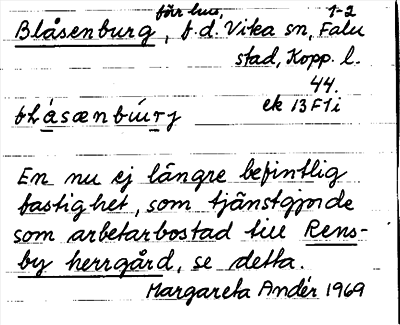 förr hus, 1-2
Blåsenburg, f.d. Vika sn, Falu
stad, Kopp. l.
44.
ek 13F1i
blåsænbúrj
En nu ej längre befintlig
fastighet, som tjänstgjorde
som arbetarbostad till Rens-
by herrgård, se detta.
Margareta Andér 1969